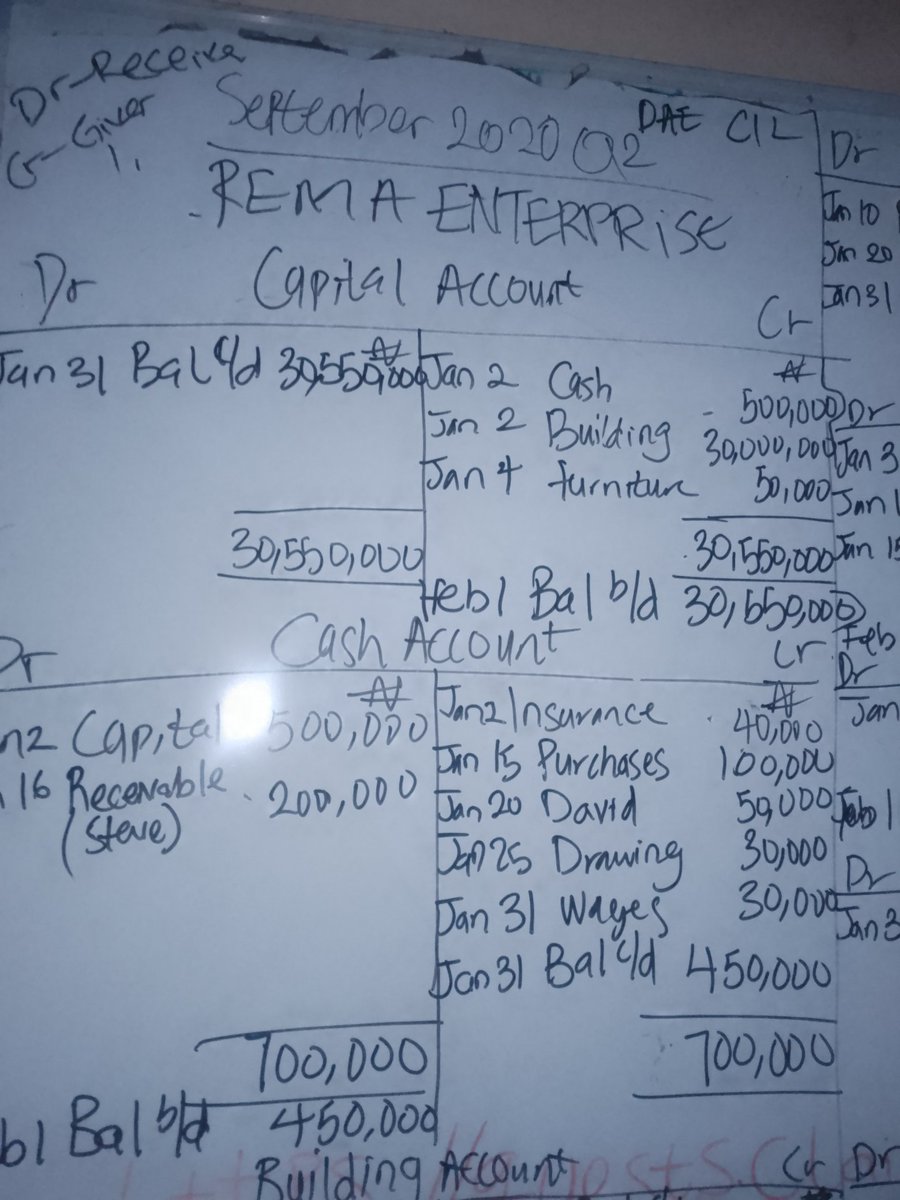 Dr-Receive
Cr-Giver
1.
September 2020 Q2
DAE C1L
REMA ENTERPRISE
Dr Capital Account Cr
Jan 31 Bal c/d ₦ 30,550,000
₦
Jan 2 Cash 500,000
Jan 2 Building 30,000,000
Jan 4 furniture 50,000
30,550,000 30,550,000
Feb 1 Bal b/d 30,550,000
Dr Cash Account Cr
₦
n2 Capital 500,000
16 Receivable 200,000
(Steve)
₦
Jan 2 Insurance 40,000
Jan 15 Purchases 100,000
Jan 20 David 50,000
Jan 25 Drawing 30,000
Jan 31 Wages 30,000
Jan 31 Bal c/d 450,000
700,000 700,000
b1 Bal b/d 450,000
Building Account Cr
Dr
Jan 10
Jan 20
Jan 31
Dr
Jan 3
Jan 1
Jan 15
Feb
Dr
Jan
Feb 1
Dr
Jan 3
Dr